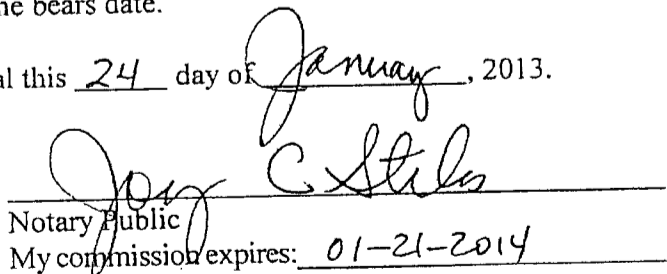 ne bears date.
al this 24 day of January, 2013.
Joy C Stiles
Notary Public
My commission expires: 01-21-2014